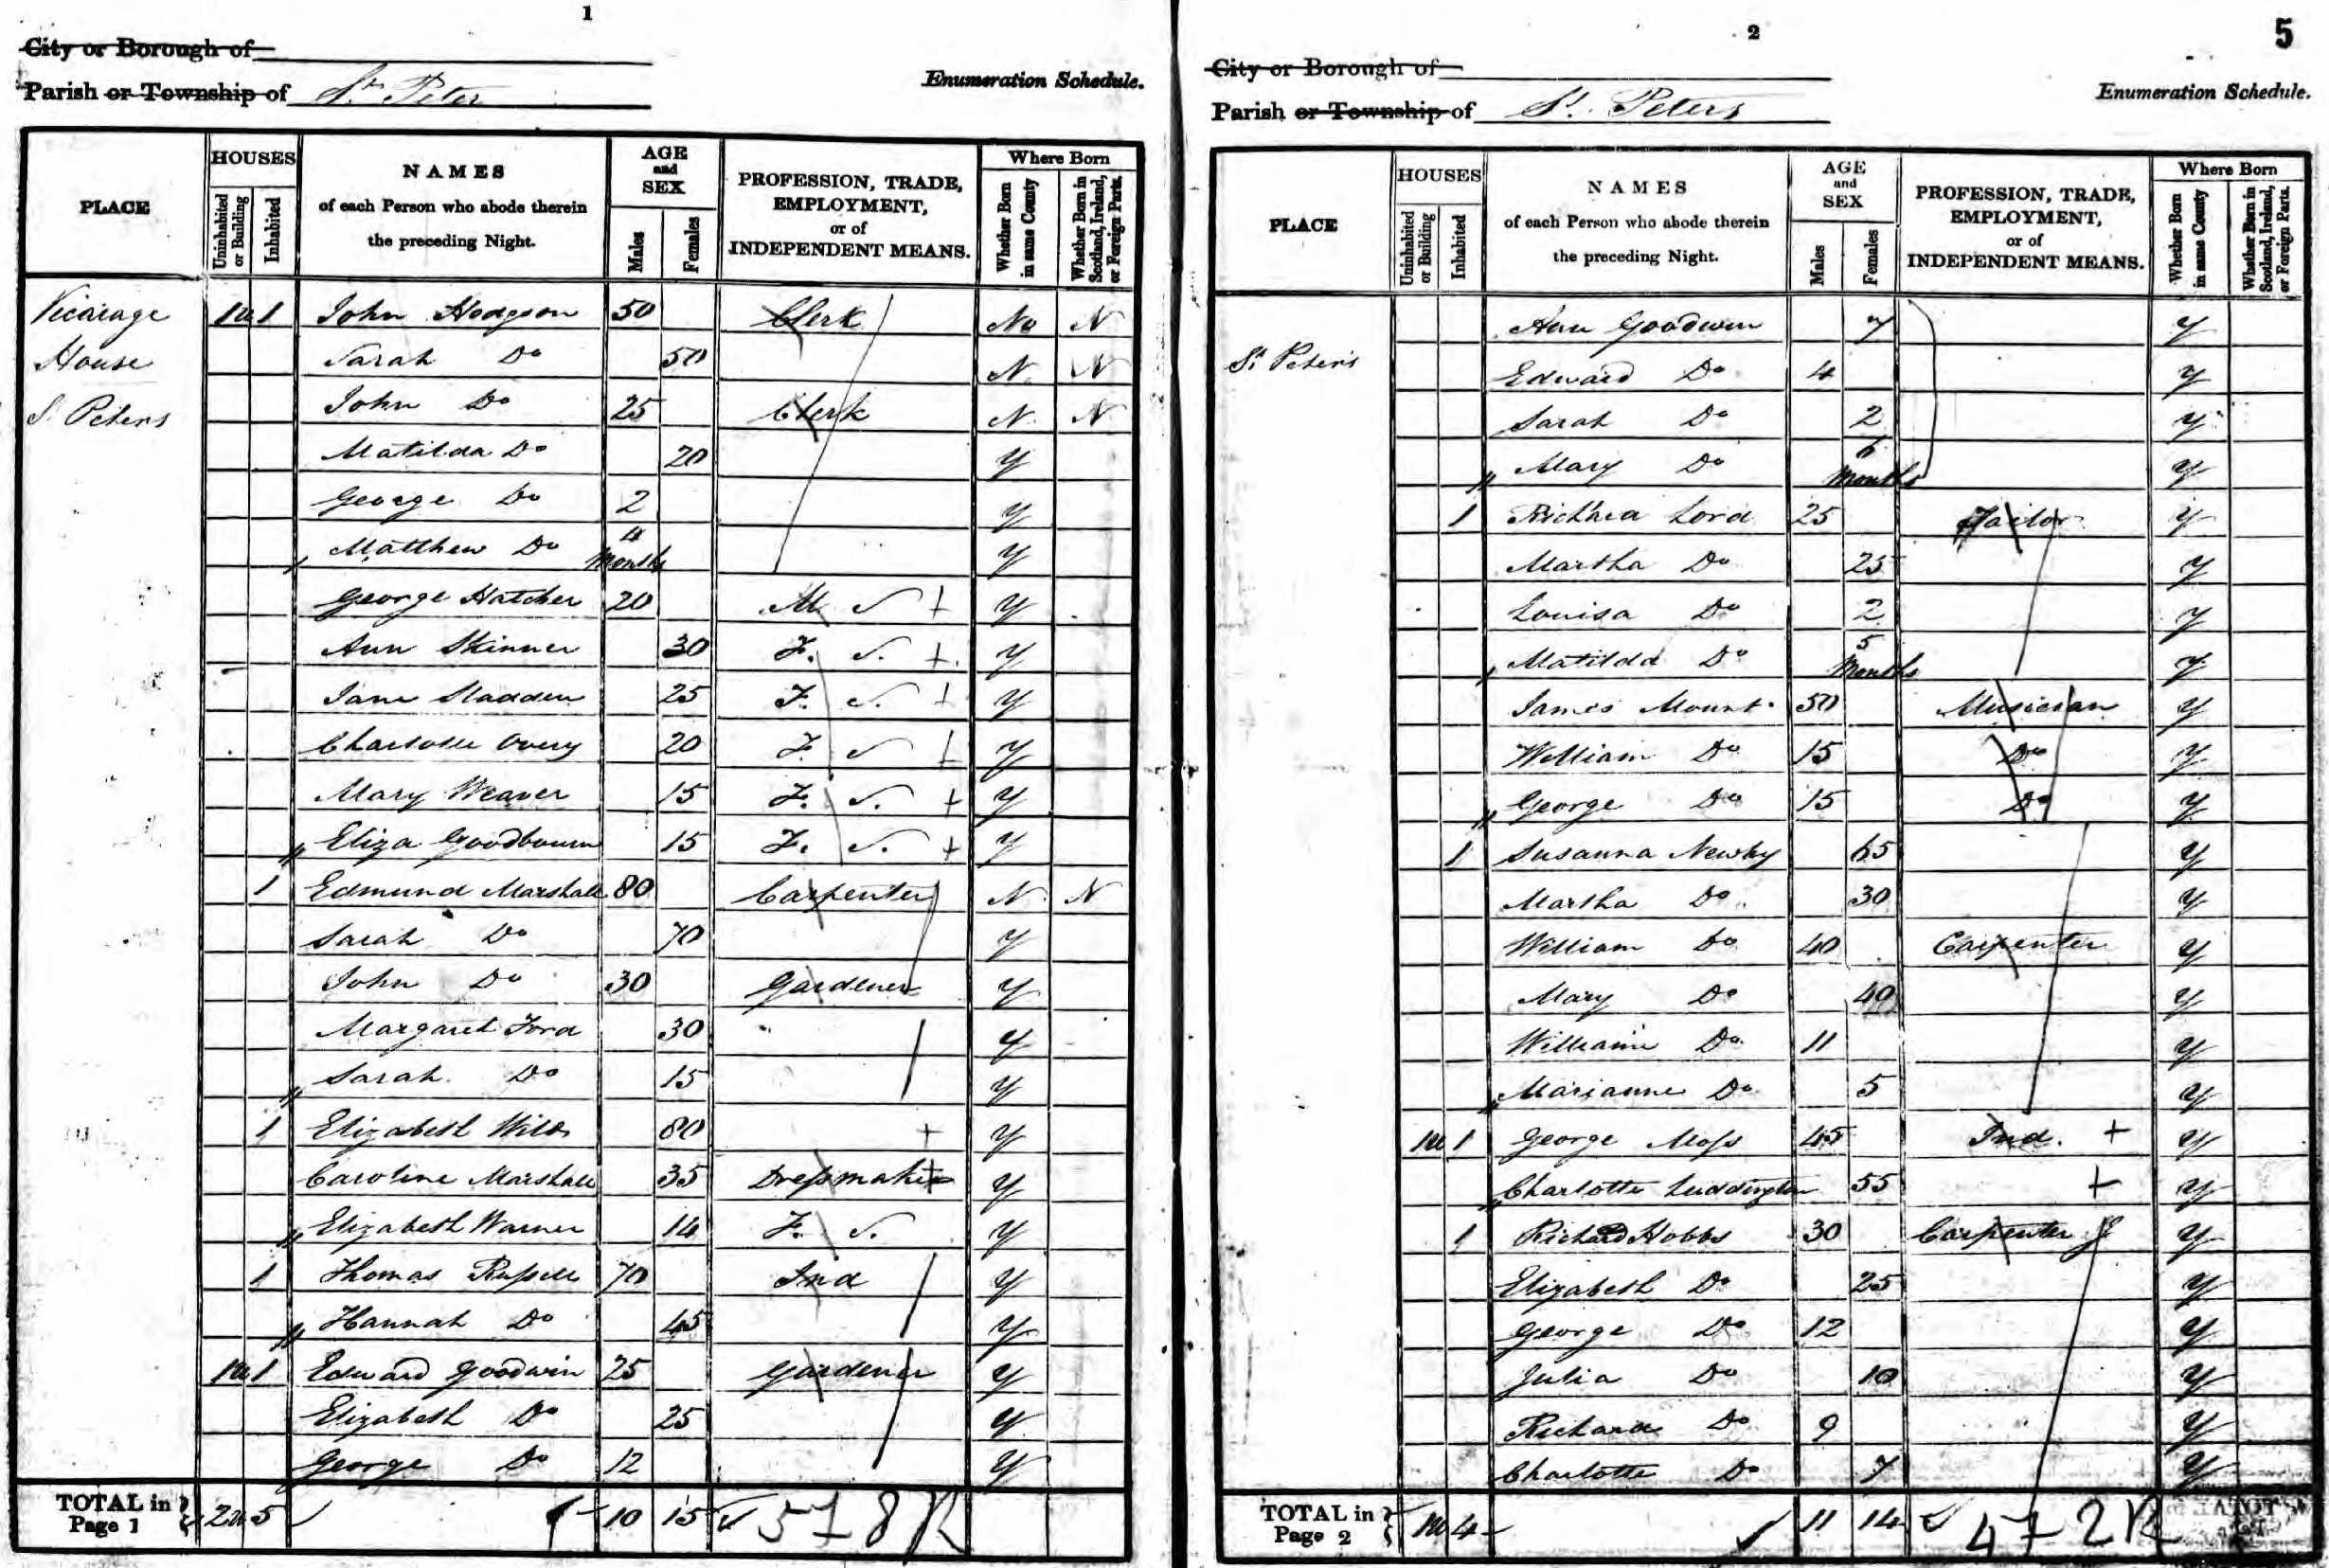 1
City or Borough of
Parish or Township of St Peter
Enumeration Schedule.
PLACE
HOUSES
Uninhabited or Building
Inhabited
NAMES
of each Person who abode therein
the preceding Night.
AGE
and
SEX
Males
Females
PROFESSION, TRADE,
EMPLOYMENT,
or of
INDEPENDENT MEANS.
Where Born
Whether Born in same County
Whether Born in Scotland, Ireland, or Foreign Parts.
Vicarage 1u 1 John Hodgson 50 Clerk No N
House Sarah Do 50 N N
S. Peters John Do 25 Clerk N N
Matilda Do 20 Y
George Do 2 Y
Matthew Do 4 Months Y
George Hatcher 20 M S + Y
Ann Skinner 30 F. S. + Y
Jane Sladden 25 F. S. + Y
Charlotte Overy 20 F. S + Y
Mary Weaver 15 F. S. + Y
Eliza Goodbourn 15 F. S. + Y
1 Edmund Marshall 80 Carpenter N N
Sarah Do 70 Y
John Do 30 Gardener Y
Margaret Ford 30 Y
Sarah Do 15 Y
1 Elizabeth Wilds 80 + Y
Caroline Marshall 35 Dressmaker + Y
Elizabeth Warner 14 F. S. Y
1 Thomas Russell 70 Ind Y
Hannah Do 45 Y
1u 1 Edward Goodwin 25 Gardener Y
Elizabeth Do 25 Y
George Do 12 Y
TOTAL in Page 1 2u 5 10 15 57 8R
2
5
City or Borough of
Parish or Township of St. Peters
Enumeration Schedule.
PLACE
HOUSES
Uninhabited or Building
Inhabited
NAMES
of each Person who abode therein
the preceding Night.
AGE
and
SEX
Males
Females
PROFESSION, TRADE,
EMPLOYMENT,
or of
INDEPENDENT MEANS.
Where Born
Whether Born in same County
Whether Born in Scotland, Ireland, or Foreign Parts.
Ann Goodwin 7 Y
St Peter's Edward Do 4 Y
Sarah Do 2 Y
Mary Do 6 Months Y
1 Richard Lord 25 Tailor Y
Martha Do 25 Y
Louisa Do 2 Y
Matilda Do 5 Months Y
James Mount 50 Musician Y
William Do 15 Do Y
George Do 15 Do Y
1 Susanna Newby 65 Y
Martha Do 30 Y
William Do 40 Carpenter Y
Mary Do 40 Y
William Do 11 Y
Marianne Do 5 Y
1u 1 George Moss 45 Ind. + Y
Charlotte Luddington 55 + Y
1 Richard Hobbs 30 Carpenter J Y
Elizabeth Do 25 Y
George Do 12 Y
Julia Do 10 Y
Richard Do 9 Y
Charlotte Do 7 Y
TOTAL in Page 2 1u 4 11 14 47 2R